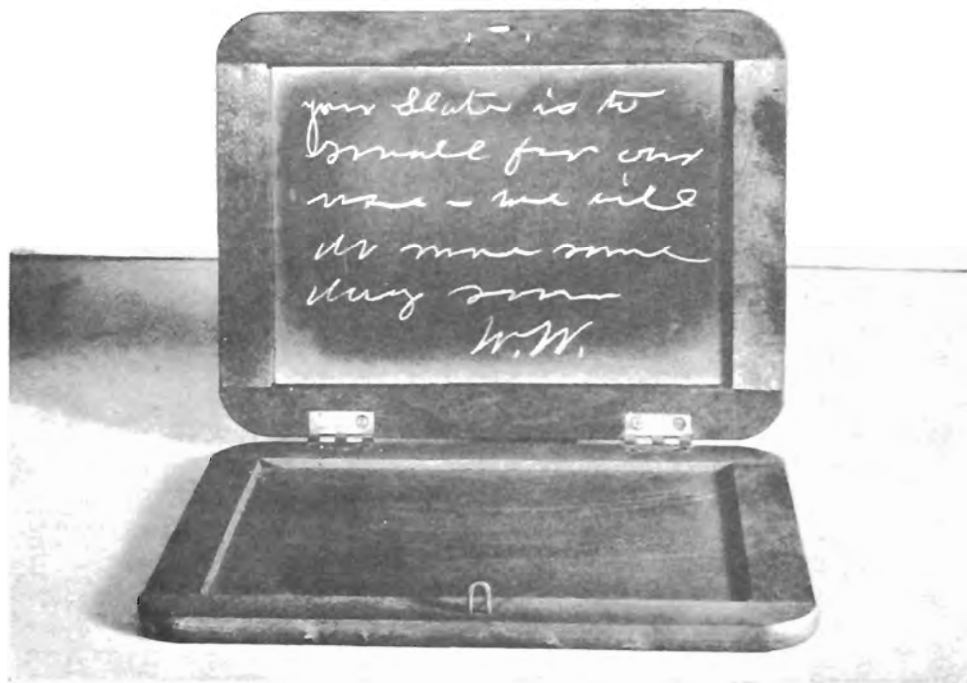 your Slate is to
small for our
use – we will
do more some
day soon
W.W.